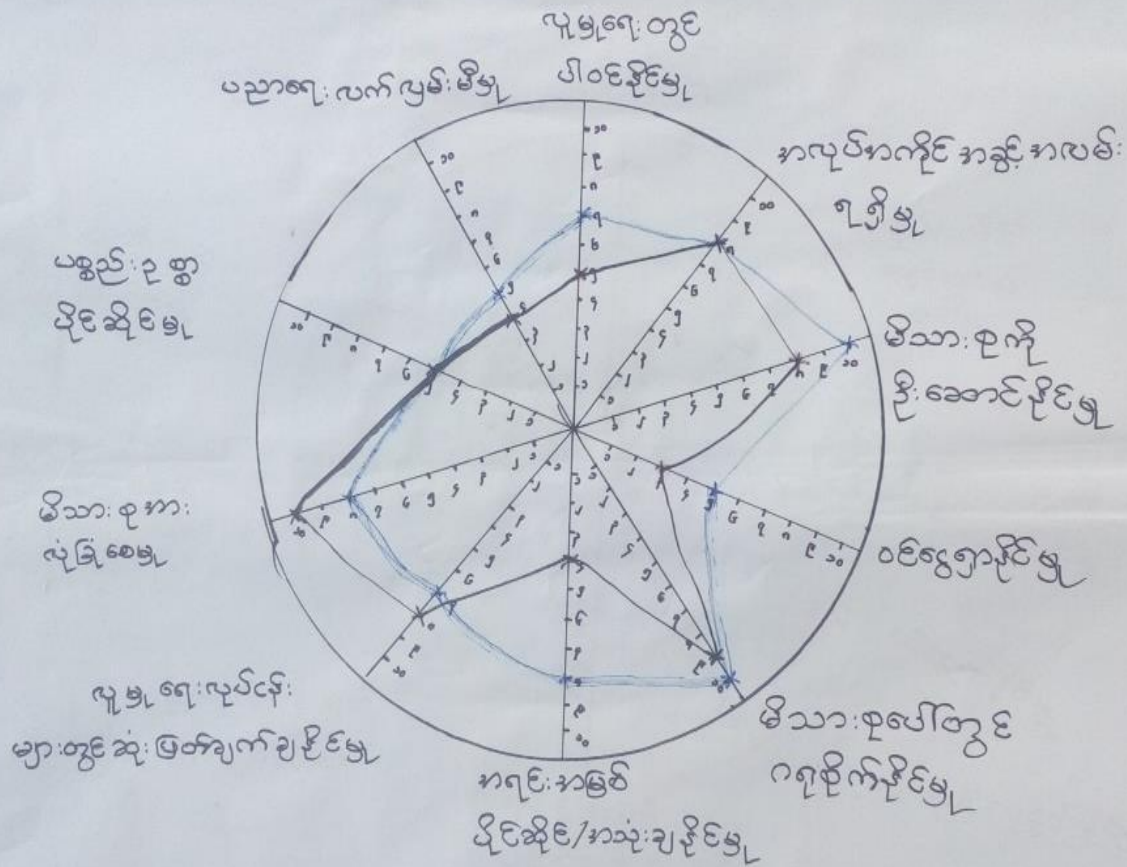 လူမှုရေးတွင်
ပါဝင်နိုင်မှု
အလုပ်အကိုင်အခွင့်အလမ်း
ရရှိမှု
မိသားစုကို
ဦးဆောင်နိုင်မှု
ဝင်ငွေရှာနိုင်မှု
မိသားစုပေါ်တွင်
ဂရုစိုက်နိုင်မှု
အရင်းအမြစ်
ပိုင်ဆိုင်/အသုံးချနိုင်မှု
လူမှုရေးလုပ်ငန်း
များတွင်ဆုံးဖြတ်ချက်ချနိုင်မှု
မိသားစုအား
လုံခြုံစေမှု
ပစ္စည်းဥစ္စာ
ပိုင်ဆိုင်မှု
ပညာရေးလက်လှမ်းမီမှု